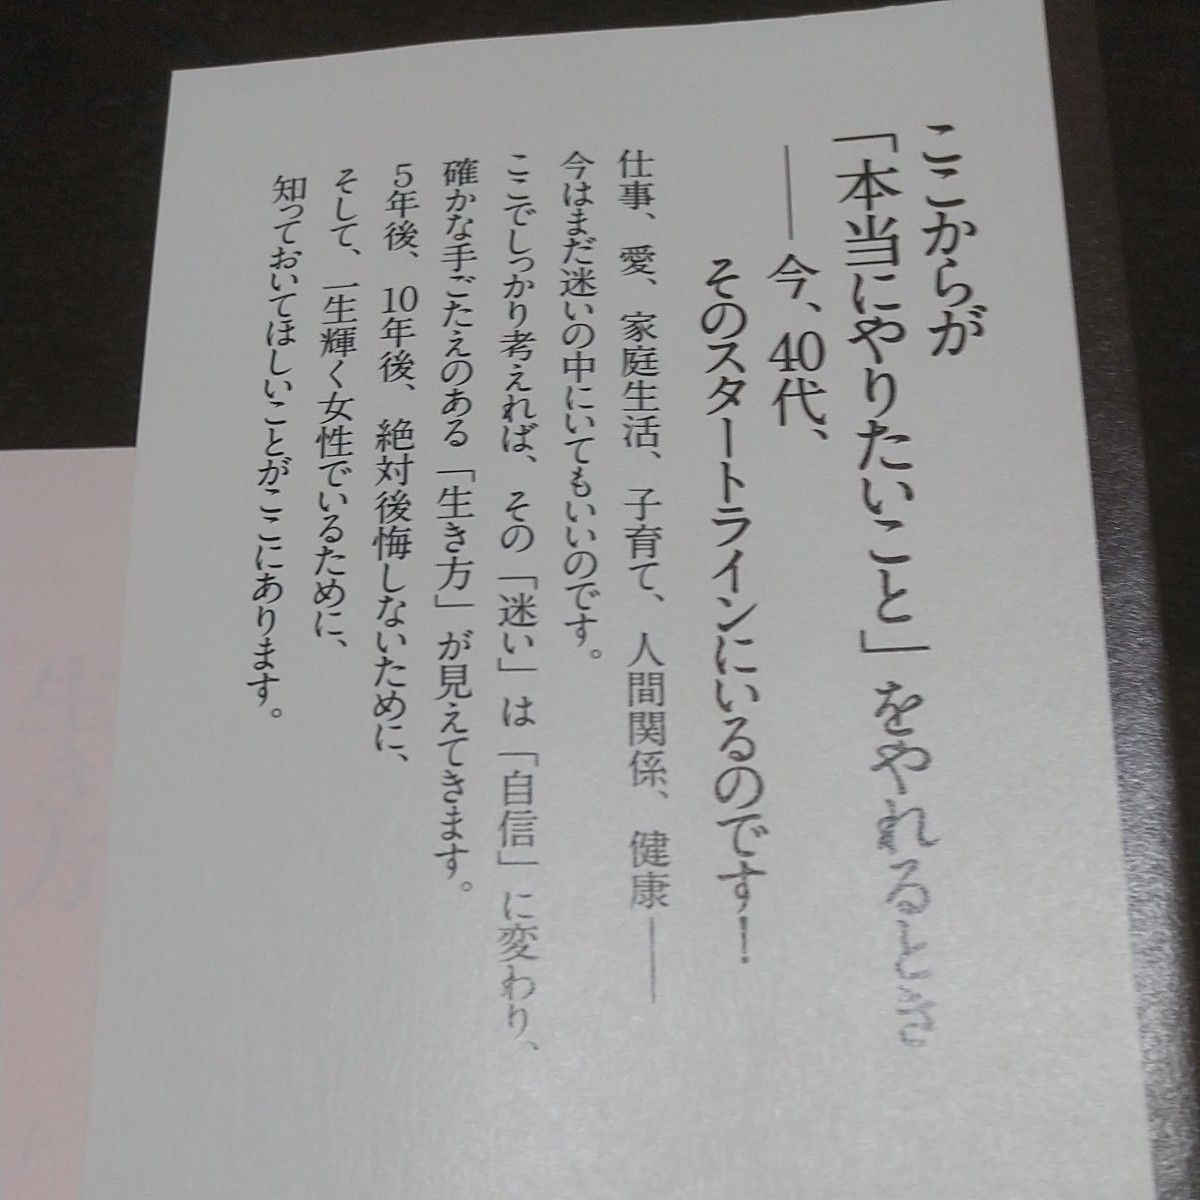 ここからが
「本当にやりたいこと」をやれるとき
――今、40代、
そのスタートラインにいるのです!
仕事、愛、家庭生活、子育て、人間関係、健康――
今はまだ迷いの中にいてもいいのです。
ここでしっかり考えれば、その「迷い」は「自信」に変わり、
確かな手ごたえのある「生き方」が見えてきます。
5年後、10年後、絶対後悔しないために、
そして、一生輝く女性でいるために、
知っておいてほしいことがここにあります。